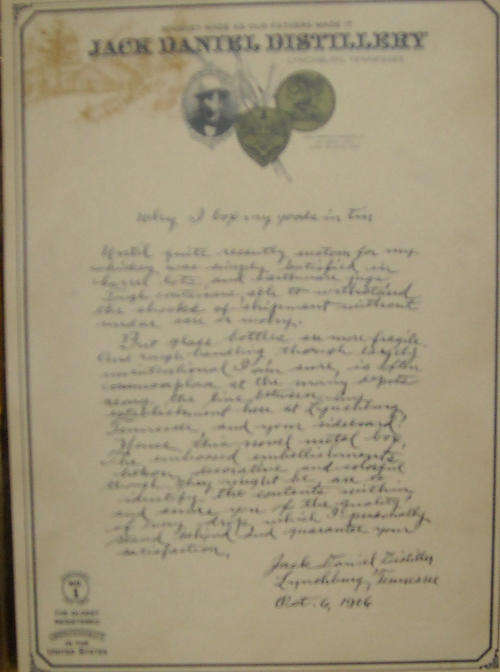 WHISKEY MADE AS OUR FATHERS MADE IT
JACK DANIEL DISTILLERY
LYNCHBURG, TENNESSEE
Why I box my goods in tin
Until quite recently custom for my
whiskey was simply satisfied in
barrel lots, and earthware jugs.
Tough containers, able to withstand
the shocks of shipment without
undue care or worry.
But glass bottles are more fragile.
And rough handling though largely
unintentional I am sure, is often
commonplace at the many depots
along the line between my
establishment here at Lynchburg,
Tennessee, and your sideboard.
Hence, this novel metal box,
The embossed embellishments
hereon, decorative and colorful
though they might be, are to
identify the contents within,
and assure you of the quality
of every drop, which I personally
stand behind and guarantee your
satisfaction.
Jack Daniel Distillery
Lynchburg, Tennessee
Oct. 6, 1906
NO. 1
THE OLDEST
REGISTERED
DISTILLERY
IN THE
UNITED STATES